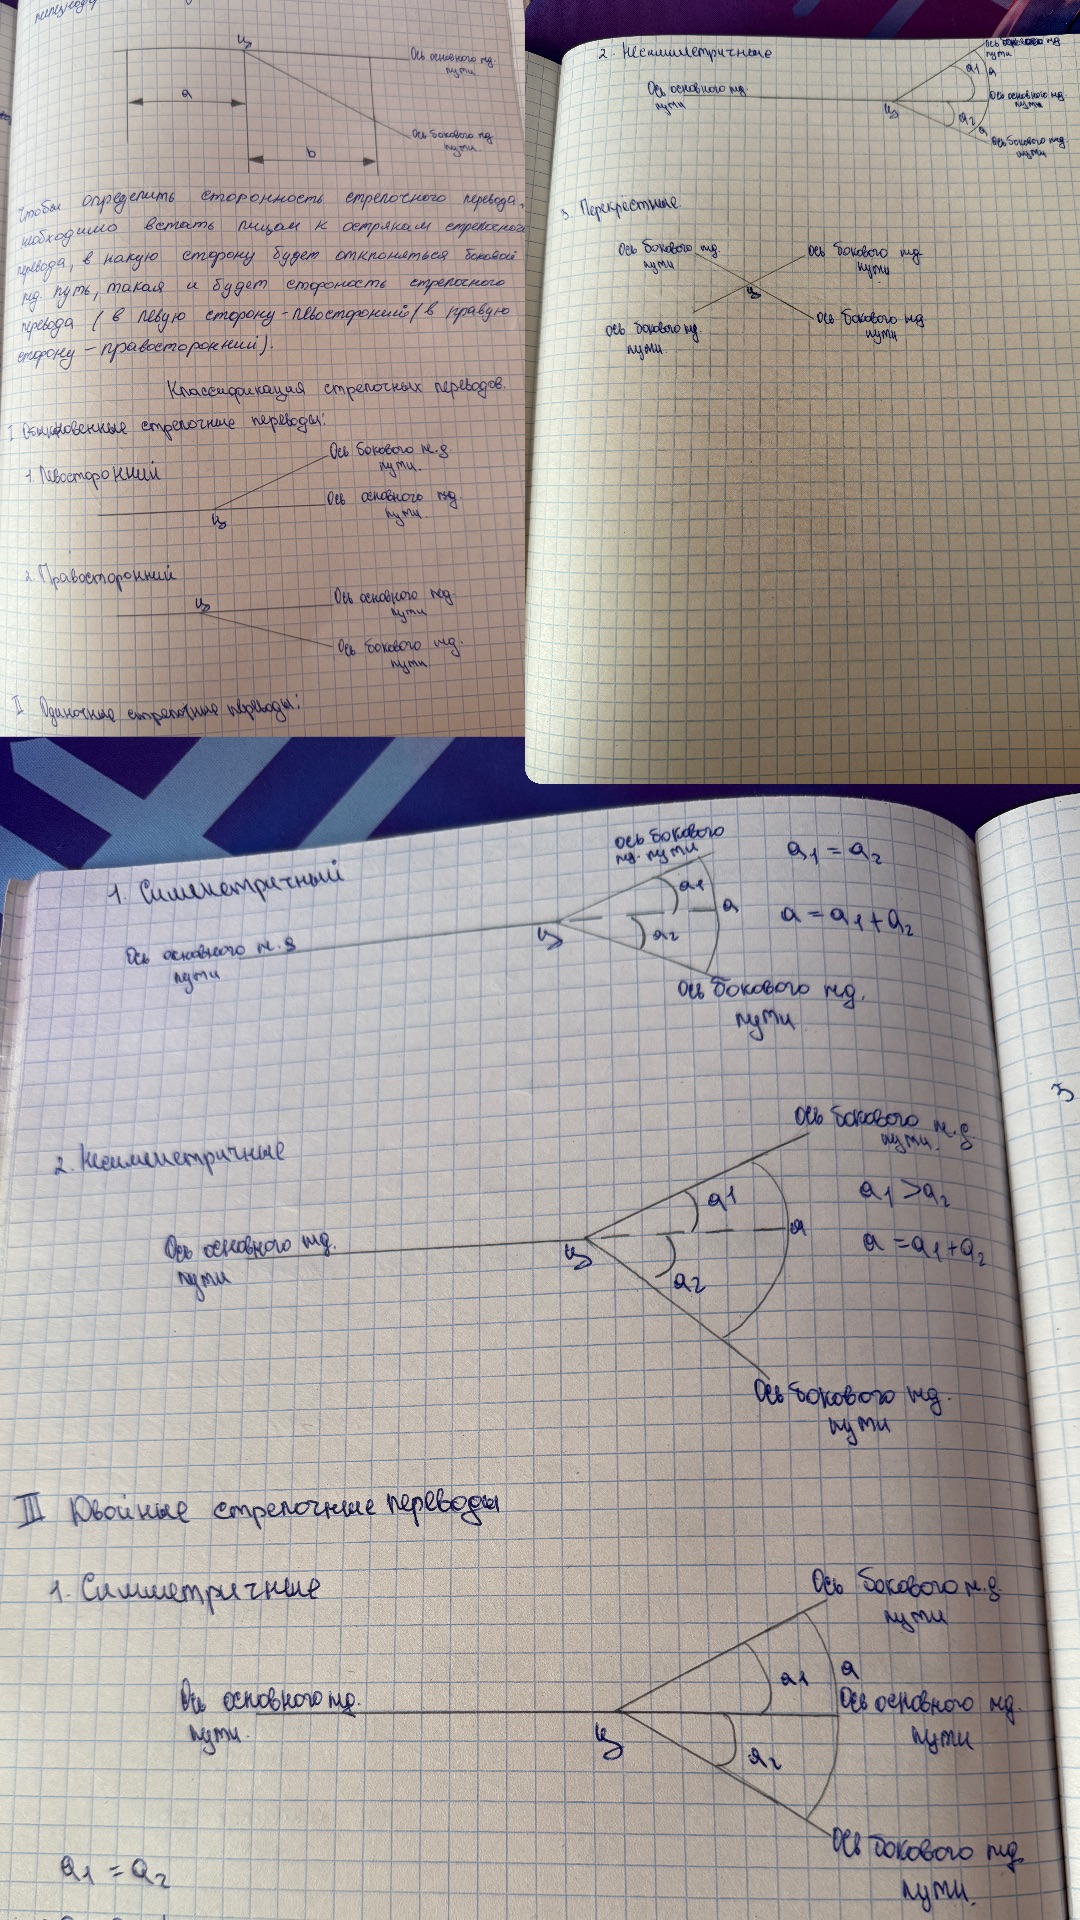 Ц
Ось основного жд.
пути
a
Ось бокового жд
пути
b
Чтобы определить сторонность стрелочного перевода,
необходимо встать лицом к острякам стрелочного
перевода, в какую сторону будет отклоняться боковой
жд. путь, такая и будет стороность стрелочного
перевода (в левую сторону - левосторонний/ в правую
сторону - правосторонний).
Классификация стрелочных переводов.
I Обыкновенные стрелочные переводы:
1. Левосторонний
Ось бокового ж.д
пути.
Ось основного жд.
пути
Ц
2. Правосторонний
Ц
Ось основного жд.
пути
Ось бокового жд.
пути
II Одиночные стрелочные переводы:
2. Несимметричные
Ось бокового жд
пути
Ось основного жд.
пути
a1
a
Ось основного жд.
пути
Ц
a2
a
Ось бокового жд.
пути
3. Перекрестные
Ось бокового жд.
пути
Ось бокового жд.
пути
Ц
Ось бокового жд.
пути
Ось бокового жд.
пути
1. Симметричный
Ось бокового
жд. пути
a1 = a2
a1
a
a = a1 + a2
Ось основного ж.д
пути
Ц
a2
Ось бокового жд.
пути
2. Несимметричные
Ось бокового ж.д
пути.
a1 > a2
a1
a
a = a1 + a2
Ось основного жд.
пути
Ц
a2
Ось бокового жд.
пути
III Двойные стрелочные переводы
1. Симметричные
Ось бокового ж.д.
пути
a1
a
Ось основного жд.
пути.
Ось основного жд.
пути
Ц
a2
Ось бокового жд
пути.
a1 = a2